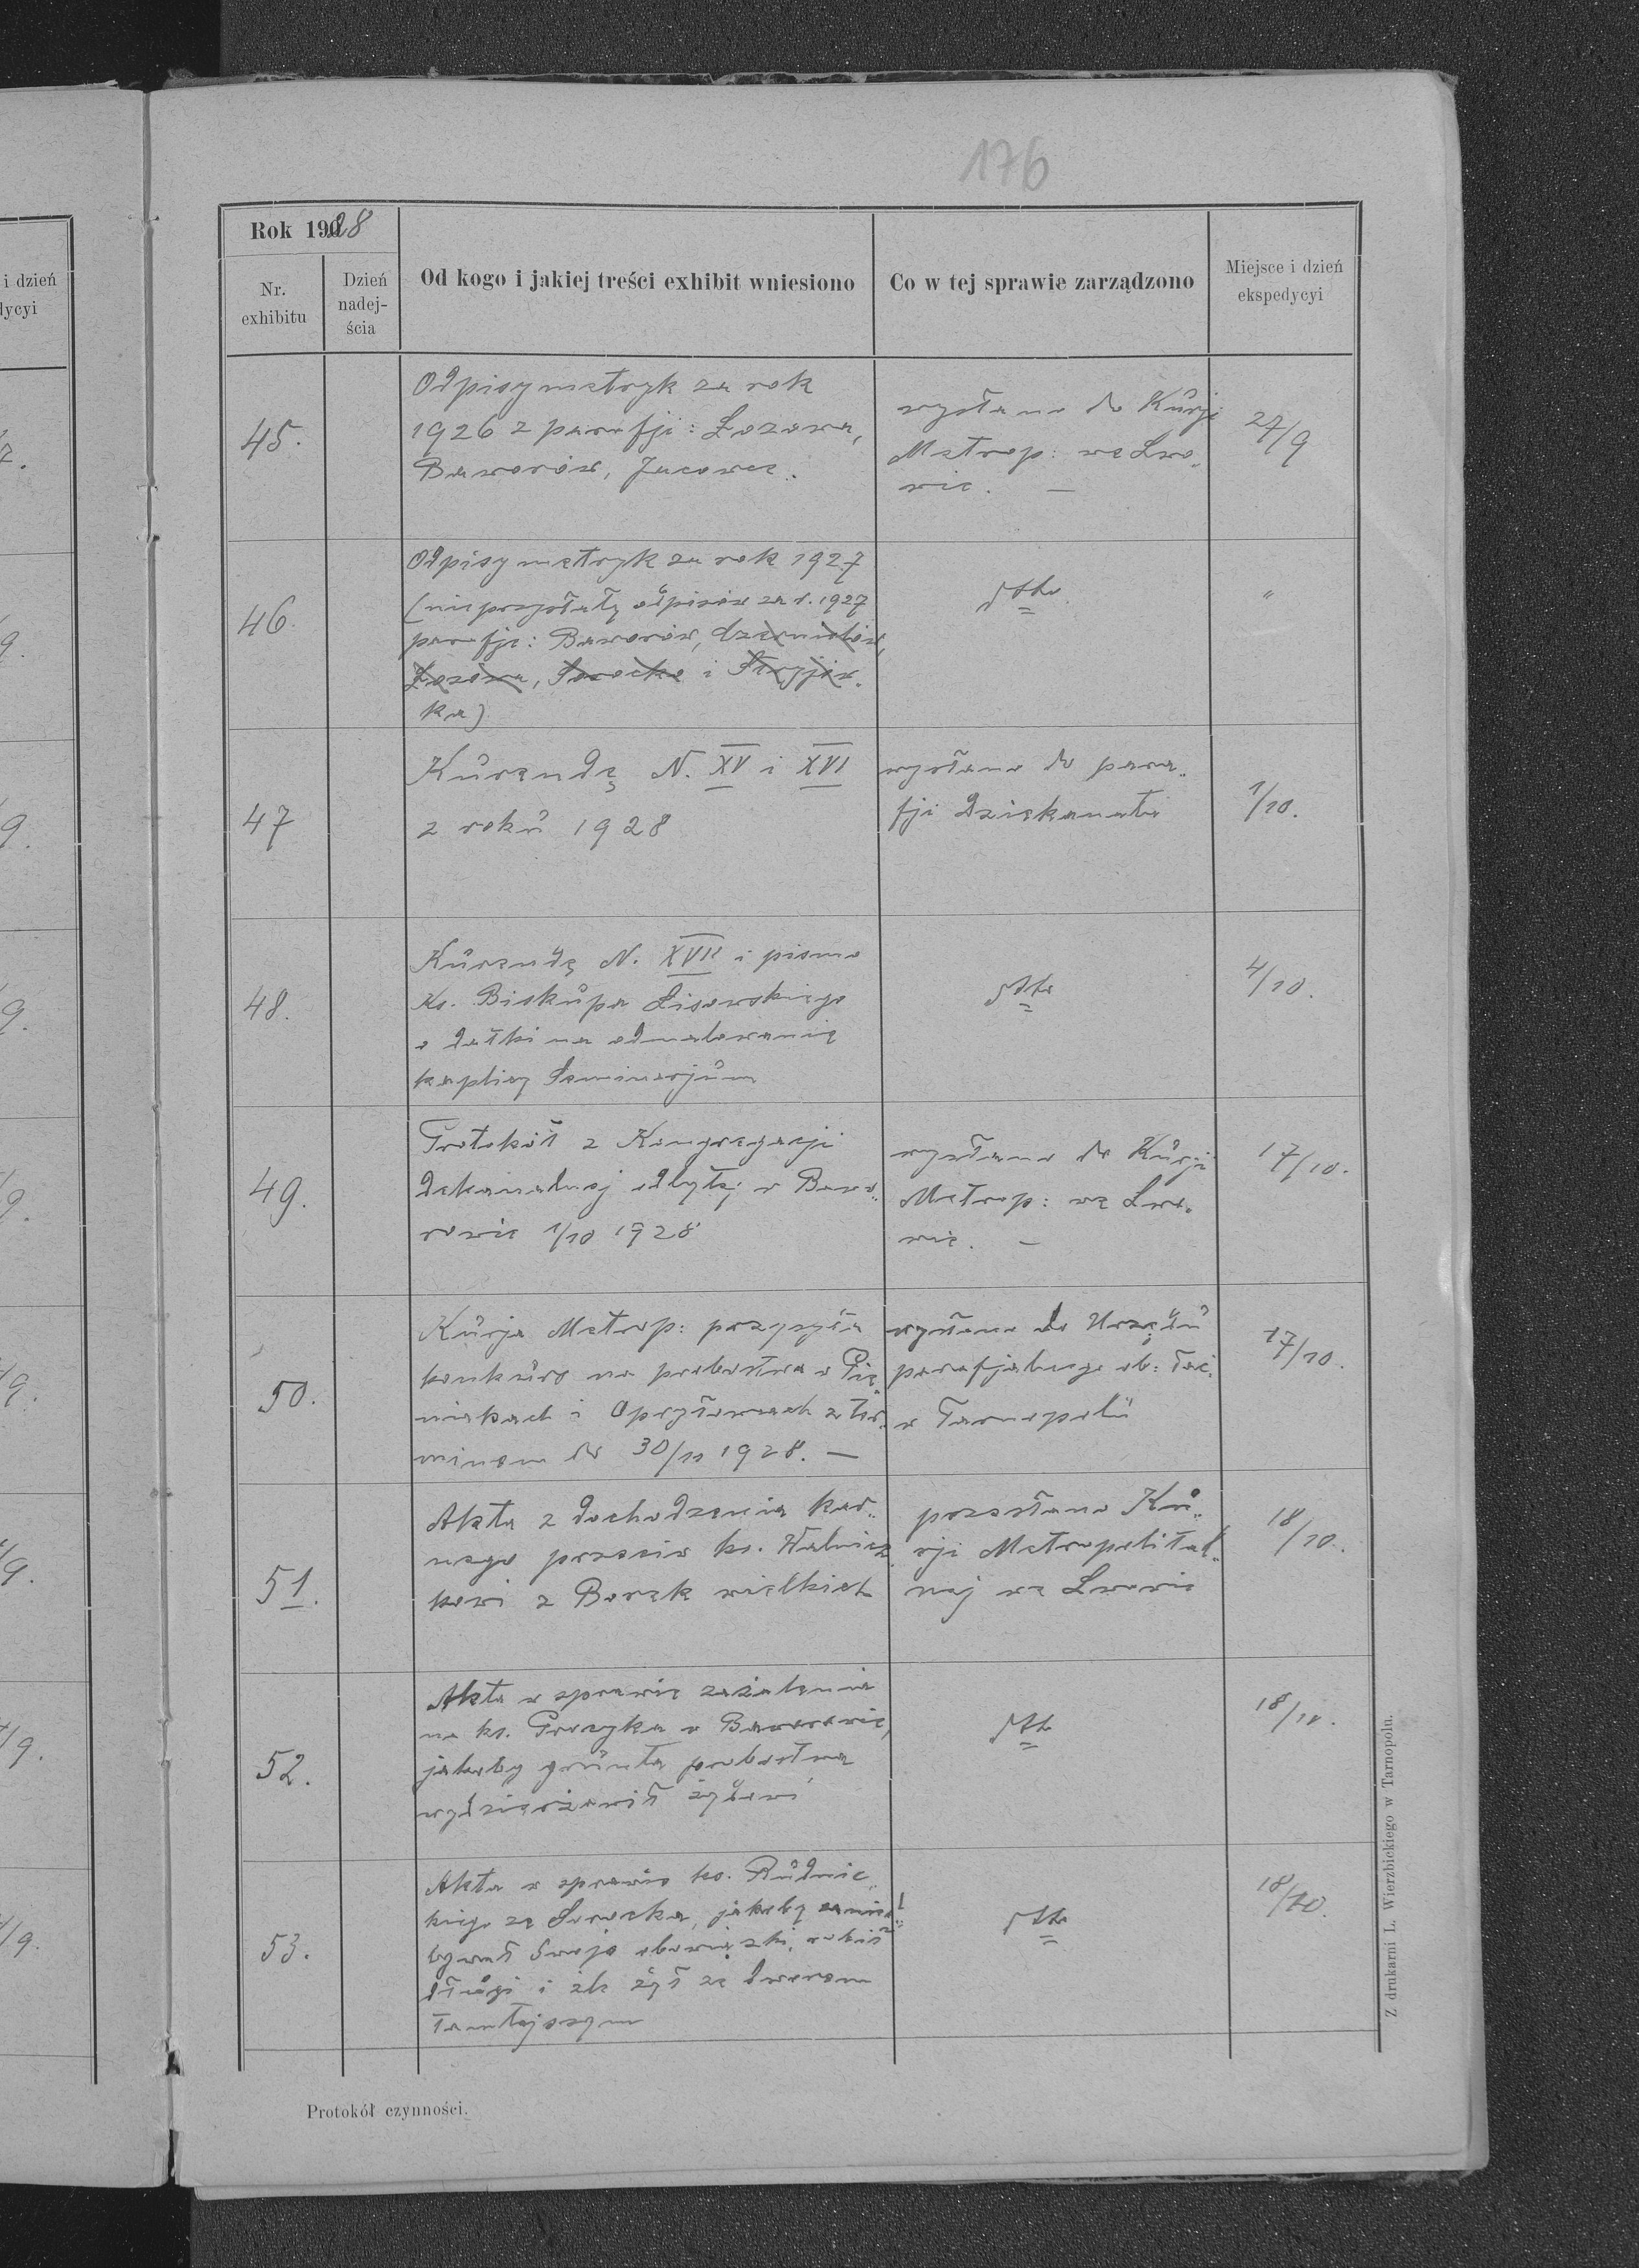 176
Rok 1928
Nr. exhibitu
Dzień nadejścia
Od kogo i jakiej treści exhibit wniesiono
Co w tej sprawie zarządzono
Miejsce i dzień ekspedycyi
45.
Odpisy metryk za rok
1926 z parafji: Łozowa,
Baworów, Jacowce.
wysłano do Kurji
Metrop: we Lwo„
wie. —
27/9
46.
Odpisy metryk za rok 1927
(nie przysłały odpisów za r. 1927
parafje: Baworów, Czernielów,
Łozowa, Sorocko i Stryjów„
ka)
dtto.
"
47
Kurendę N. XV i XVI
z roku 1928
wysłano do para„
fji Dziekanatu
1/10.
48.
Kurendę N. XVII i pismo
Ks. Biskupa Lisowskiego
o datki na odmalowanie
kaplicy Seminarjum
dtto
4/10.
49.
Protokół z Kongregacji
Dekanalnej odbytej w Bawo„
rowie 1/10 1928
wysłano do Kurji
Metrop: we Lwo„
wie. —
17/10.
50.
Kurja Metrop: przysyła
konkurs na probostwa w Pie„
niakach i Opryłowcach z ter„
minem do 30/11 1928. —
wysłano do Urzędu
parafjalnego ob: łać.
w Tarnopolu
17/10.
51.
Akta z dochodzenia kar„
nego przeciw ks. Walnicz„
kowi z Borek wielkich
przesłano Ku„
rji Metropolital„
nej we Lwowie
18/10.
52.
Akta w sprawie zażalenia
na ks. Proszyka w Baworowie,
jakoby grunta probostwa
wydzierżawił żydowi
dtto
18/10.
53.
Akta w sprawie ks. Rudnic„
kiego ze Sorocka, jakoby zanied„
bywał swoje obowiązki, robił
długi i źle żył ze dworem
tamtejszym
dtto
18/10.
Protokół czynności.
Z drukarni L. Wierzbickiego w Tarnopolu.
i dzień
dycyi